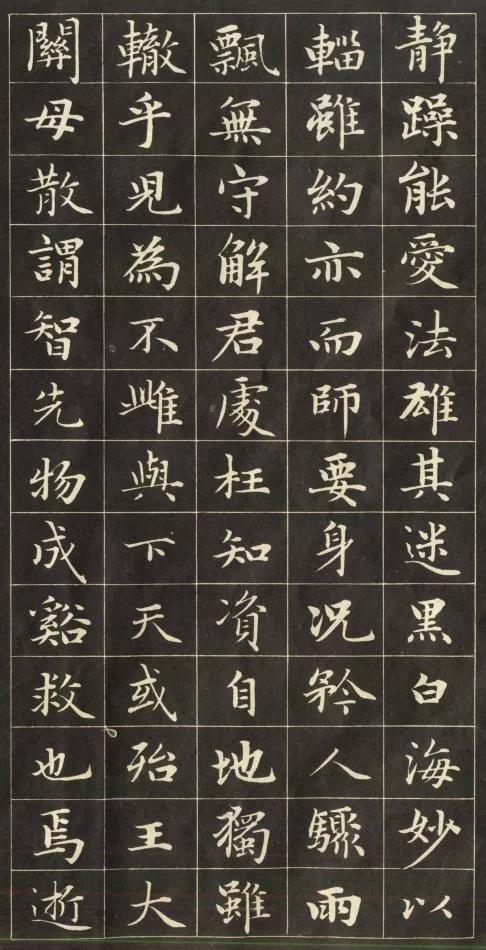 静躁能愛法雄其迷黑白海妙以
輜雖約亦而師要身况矜人驟雨
飄無守解君處枉知資自地獨雖
轍乎兒為不雌與下天或殆王大
關母散謂智先物成谿救也焉逝